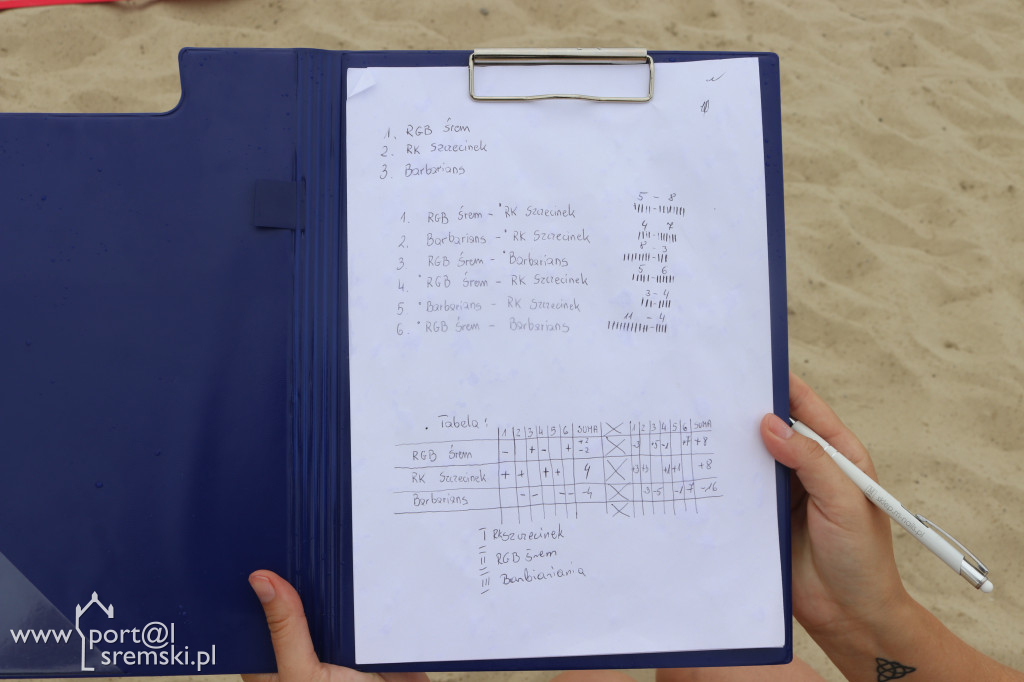 1. RGB Śrem
2. RK Szczecinek
3. Barbarians
5 - 8
1. RGB Śrem - RK Szczecinek
4 7
2. Barbarians - RK Szczecinek
8 - 3
3. RGB Śrem - Barbarians
5 6
4. RGB Śrem - RK Szczecinek
3 - 4
5. Barbarians - RK Szczecinek
11 - 4
6. RGB Śrem - Barbarians
Tabela: 1 2 3 4 5 6 SUMA 1 2 3 4 5 6 SUMA
RGB Śrem - + - + +2 -2 -3 +5 -1 +7 +8
RK Szczecinek + + + + 4 +3 +3 +1 +1 +8
Barbarians - - - - -4 -3 -5 -1 -7 -16
I RK Szczecinek
II RGB Śrem
III
www.portal
sremski.pl